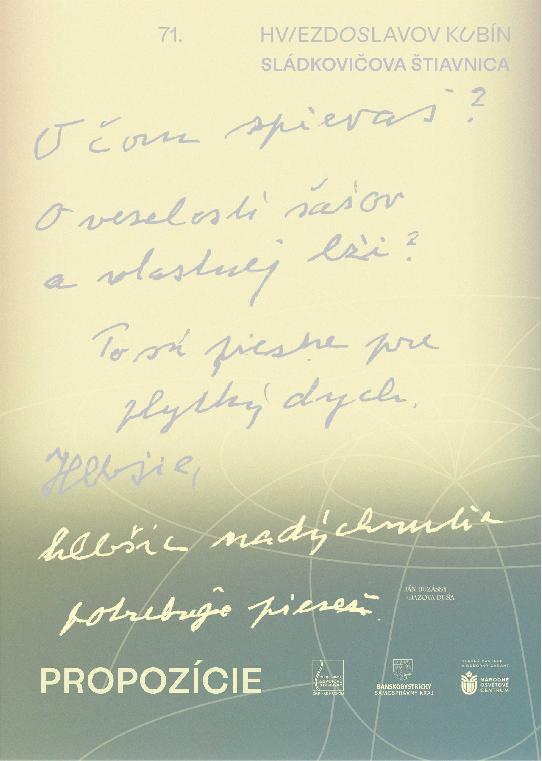 71. HVIEZDOSLAVOV KUBÍN
SLÁDKOVIČOVA ŠTIAVNICA
O čom spievaš?
O veselosti šašov
a vlastnej lži?
To sú piesne pre
plytký dych.
Hlbšie,
hlbšie nadýchnutia
potrebuje pieseň.
JÁN BUZÁSSY
PROPOZÍCIE
BANSKOBYSTRICKÝ
SAMOSPRÁVNY KRAJ
NÁRODNÉ
OSVETOVÉ
CENTRUM